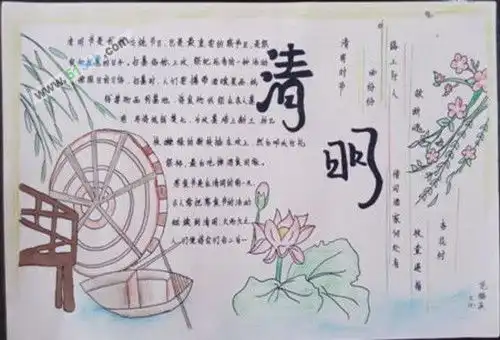 清明
清明节是我国传统节日，也是最重要的祭节日，是祭
祖和扫墓的日子。扫墓俗称上坟，祭祀死者的一种活动
扫墓时，人们要携带酒食果品，纸
钱等物品到墓地，将食物供祭在亲人墓
前，再将纸钱焚化，为坟墓培上新土，折几
枝嫩绿的新枝插在坟上，然后叩头行礼
祭拜，最后吃掉酒食回家。
寒食节是在清明的前一天
古人常把寒食节的活动
延续到清明，久而久之
人们便将它们合二为一
清明时节
雨纷纷
路上行人
欲断魂
借问酒家何处有
牧童遥指
杏花村